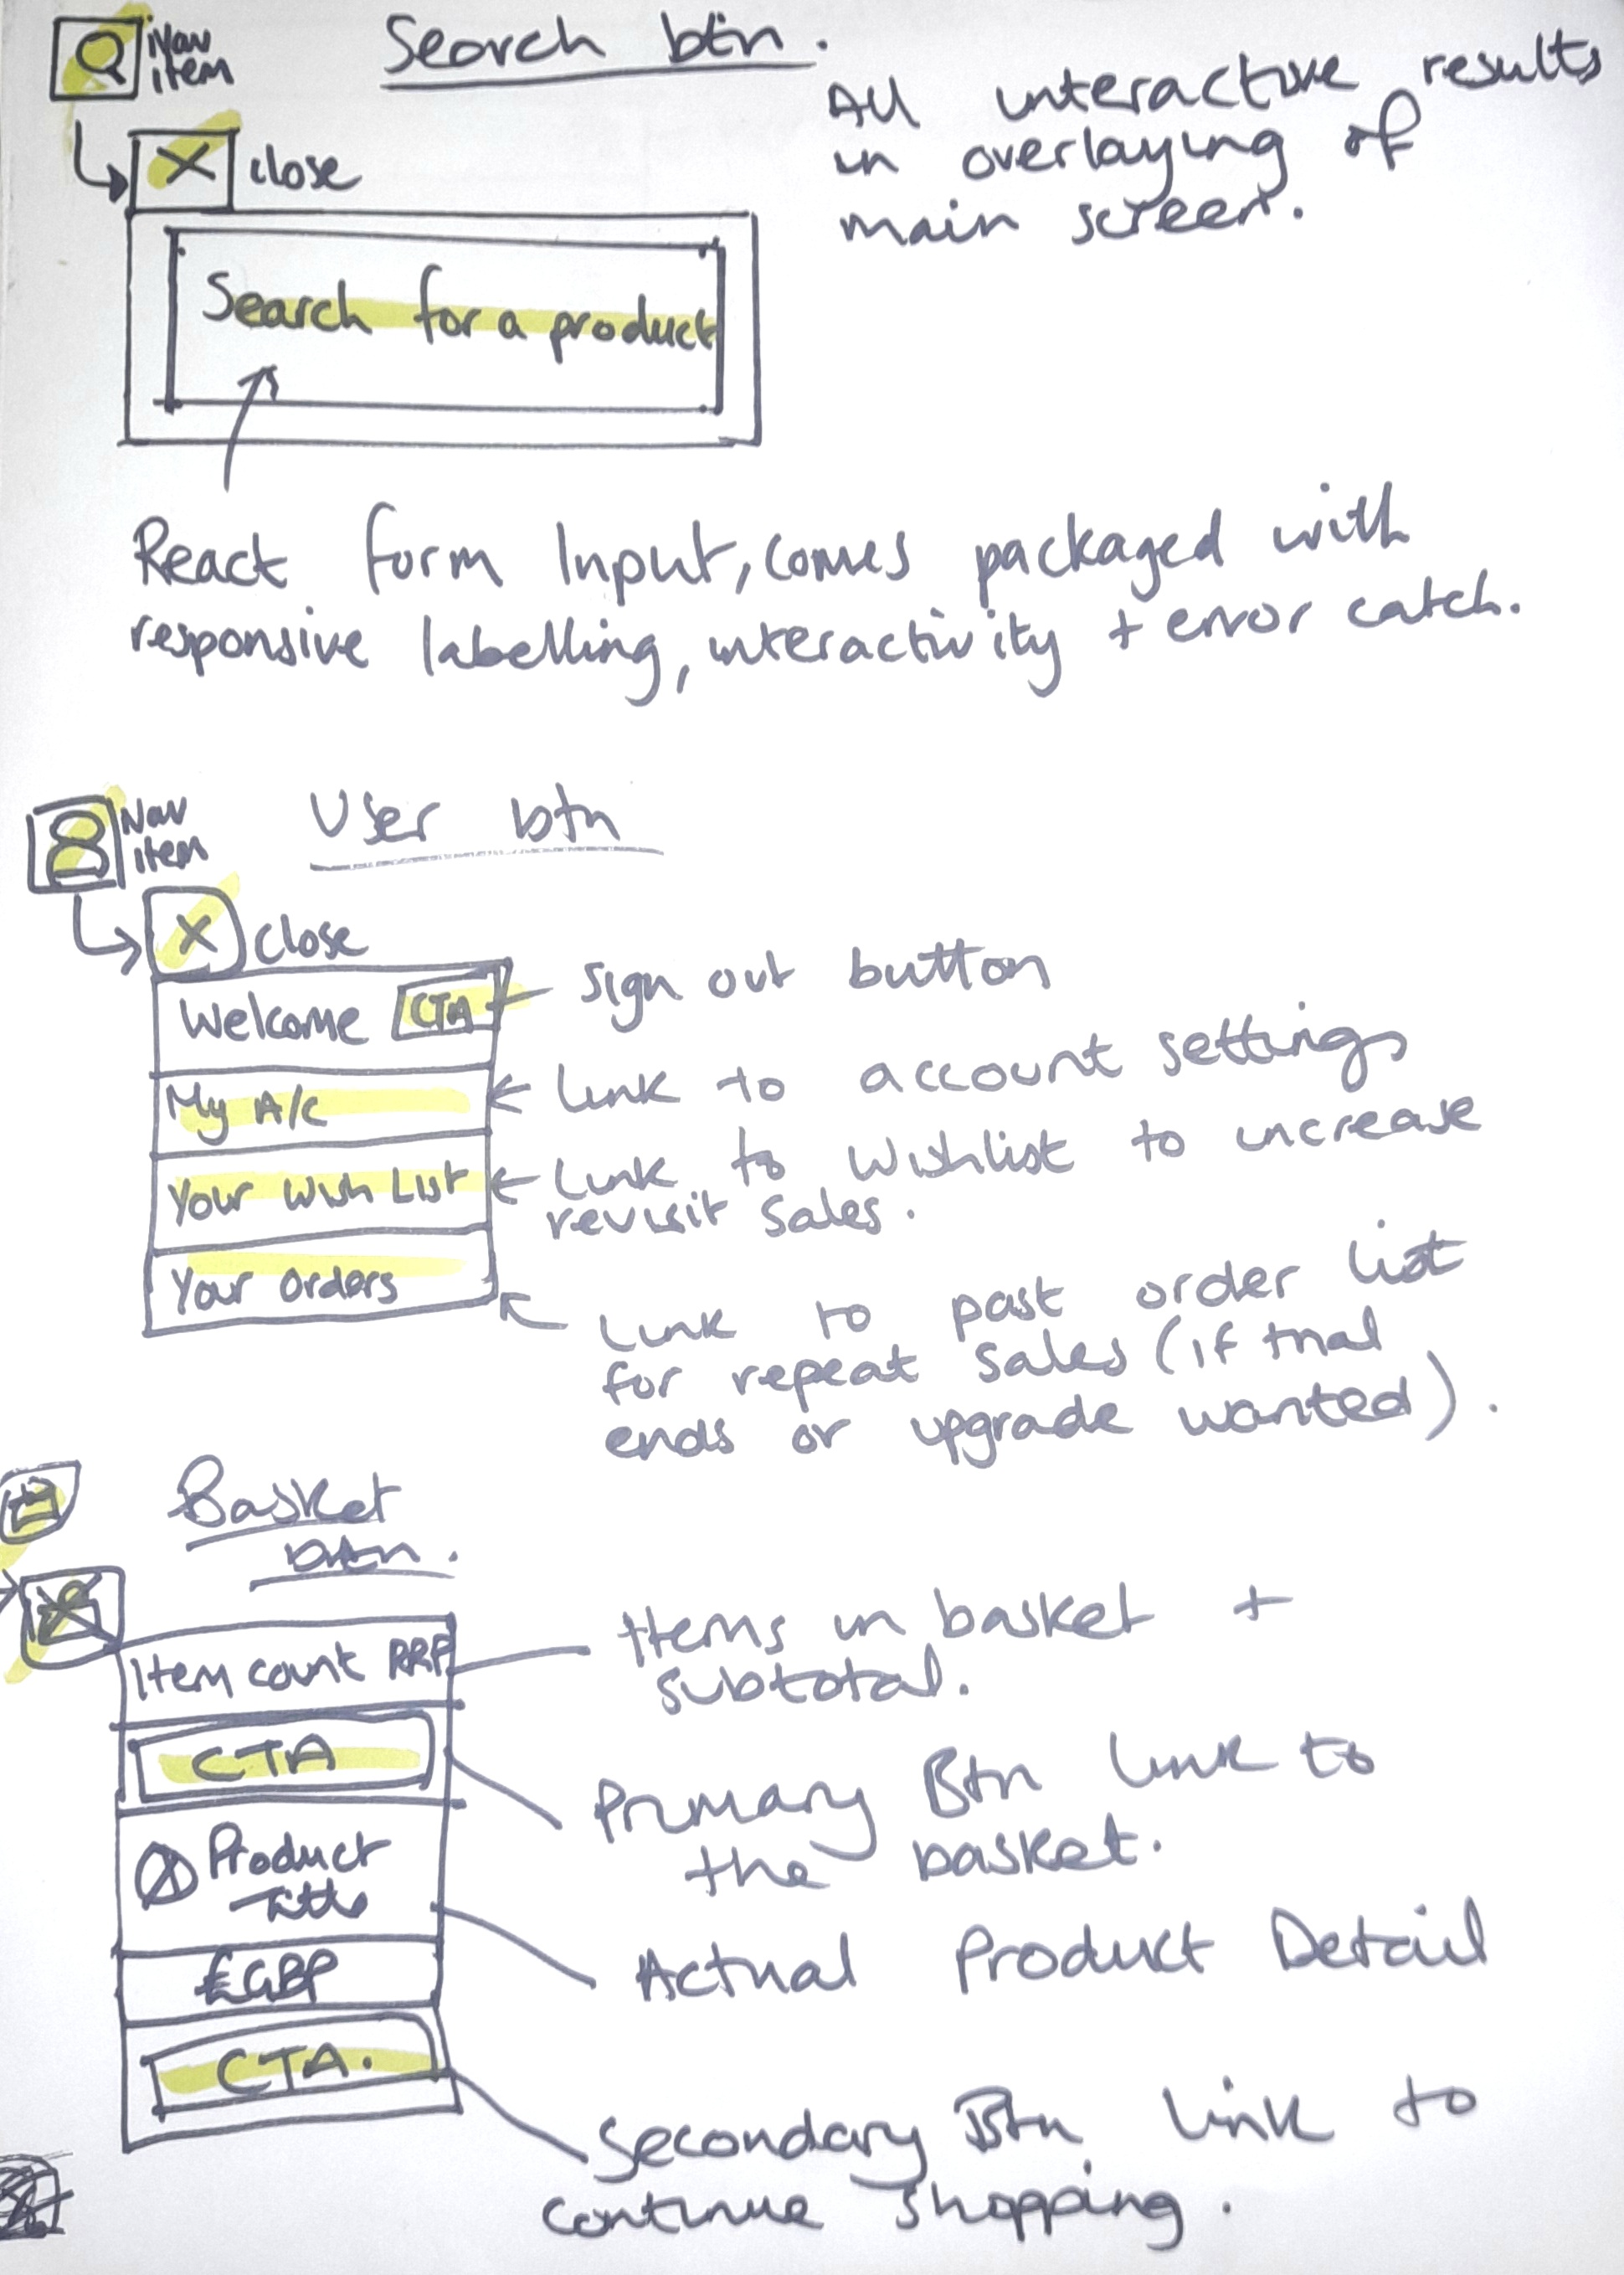 Nav
item
Search btn.
All interactive results
in overlaying of
main screen.
X close
Search for a product
React form Input, comes packaged with
responsive labelling, interactivity + error catch.
Nav
item
User btn
X close
Welcome CTA
Sign out button
My A/C
Link to account settings
Your Wish List
Link to Wishlist to increase
revisit sales.
Your Orders
Link to past order list
for repeat sales (if trial
ends or upgrade wanted).
Basket
btn.
Item count RRP
Items in basket +
subtotal.
CTA
Primary Btn link to
the basket.
Product
Title
Actual Product Detail
£GBP
CTA.
Secondary Btn link to
continue shopping.